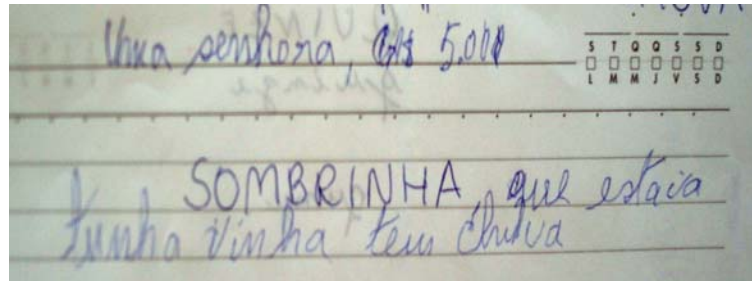 NOVA
Uma senhora, 5.000
S T Q Q S S D
L M M J V S D
SOMBRINHA, que estava
tinha vinha tem chuva